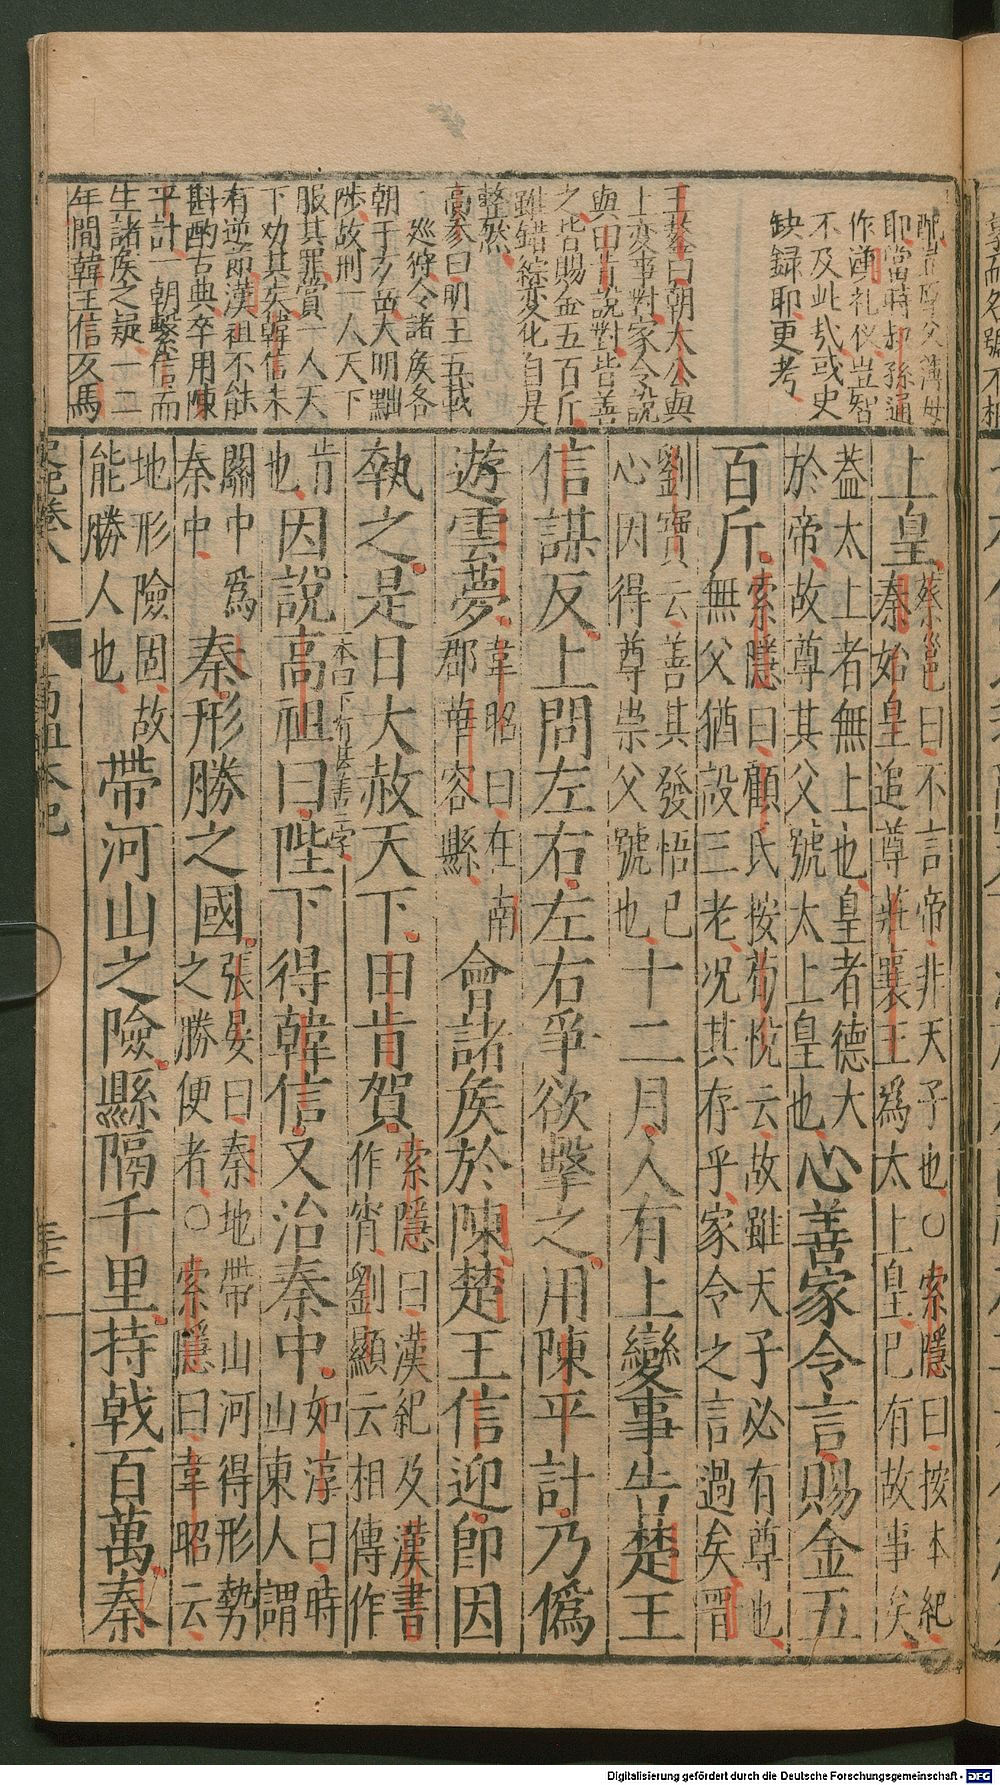 耶當時叔孫通
作漢礼仪豈智
不及此㢤或史
缺録耶更考
王鏊曰朝太公與
上変事對家令說
與田肯說對皆善
之皆賜金五百斤
雖錯綜变化自是
整然
高參曰明王五載
一巡狩令諸矦各
朝于方岳大明黜
陟故刑一人天下
服其罪賞一人天
下劝其矣韓信未
有逆節漢祖不能
斟酌古典卒用陳
平計一朝繫信而
生諸矦之疑一二
年間韓王信反馬
上皇
蔡邕曰不言帝非天子也○索隱曰按本紀
秦始皇追尊莊襄王爲太上皇已有故事矣
葢太上者無上也皇者德大
於帝故尊其父號太上皇也
心善家令言賜金五
百斤
索隱曰顧氏按荀悅云故雖天子必有尊也
無父猶設三老况其存乎家令之言過矣晋
劉寶云善其發悟已
心因得尊崇父號也
十二月人有上變事告楚王
信謀反上問左右左右爭欲擊之用陳平計乃僞
遊雲夢
韋昭曰在南
郡華容縣
會諸矦於陳楚王信迎即因
執之是日大赦天下田肯賀
索隱曰漢紀及漢書
作宵劉顯云相傳作
肯
也
因說高祖曰陛下得韓信又治秦中
一本曰下有甚善二字
如淳曰時
山東人謂
關中爲
秦中
秦形勝之國
張晏曰秦地帶山河得形勢
之勝便者○索隱曰韋昭云
地形險固故
能勝人也
帶河山之險縣隔千里持戟百萬秦
史記卷八
高祖本紀
Digitalisierung gefördert durch die Deutsche Forschungsgemeinschaft - DFG